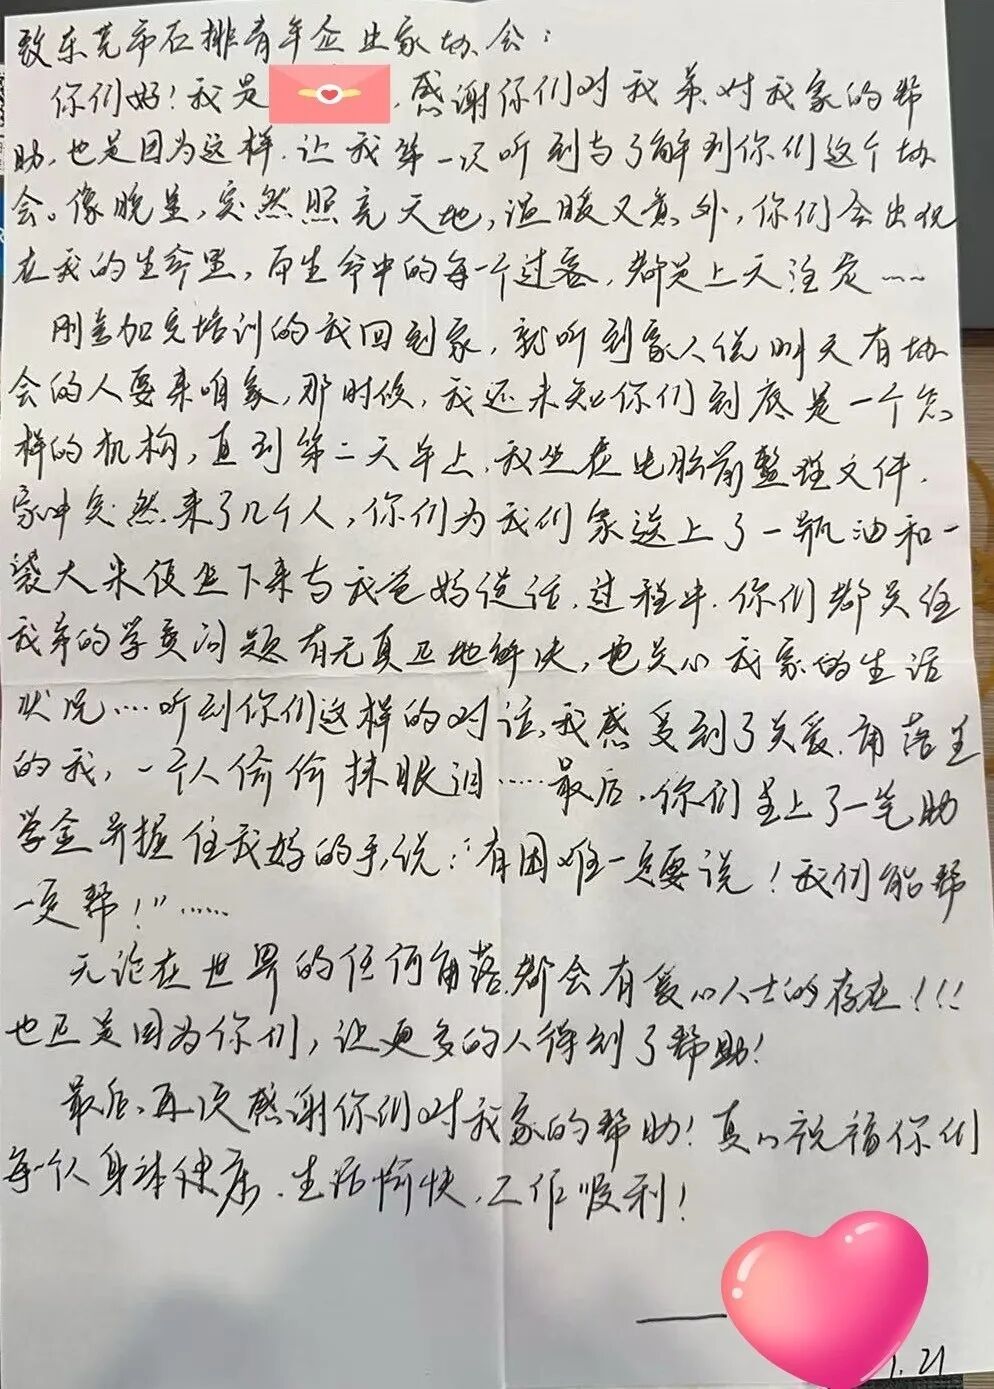 致东莞市石排青年企业家协会：
你们好！我是，感谢你们对我弟、对我家的帮
助，也是因为这样，让我第一次听到与了解到你们这个协
会。像晚星，突然照亮天地，温暖又意外，你们会出现
在我的生命里，而生命中的每一个过客，都是上天注定……
刚参加完培训的我回到家，就听到家人说明天有协
会的人要来咱家，那时候，我还未知你们到底是一个怎
样的机构，直到第二天早上，我坐在电脑前整理文件，
家中突然来了几个人，你们为我们家送上了一瓶油和一
袋大米便坐下来与我爸妈谈话，过程中，你们都关注
我弟的学费问题有无真正地解决，也关心我家的生活
状况……听到你们这样的对话，我感受到了关爱，角落里
的我，一个人偷偷抹眼泪……最后，你们呈上了一笔助
学金并握住我妈的手，说：“有困难一定要说！我们能帮
一定帮！”……
无论在世界的任何角落，都会有爱心人士的存在！！！
也正是因为你们，让更多的人得到了帮助！
最后，再次感谢你们对我家的帮助！真心祝福你们
每个人身体健康、生活愉快、工作顺利！
——
1.21